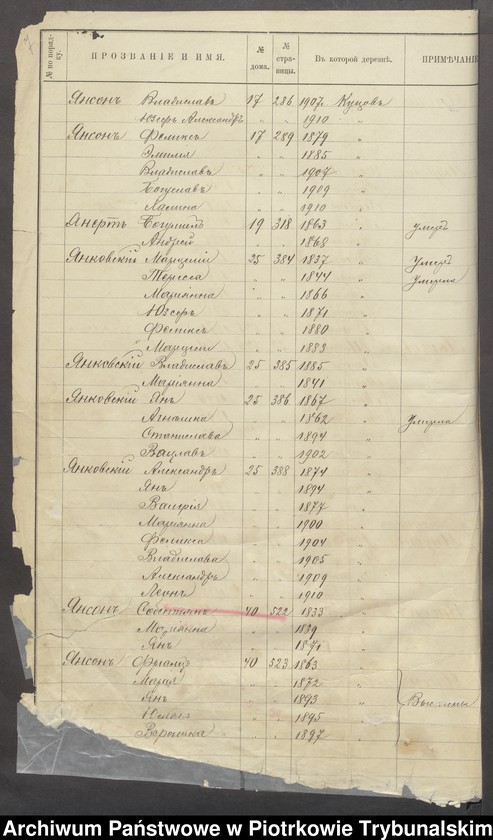 № по поряд-ку. ПРОЗВАНІЕ И ИМЯ. № дома. № стра-ницы. Въ которой деревнѣ. ПРИМѢЧАНІ
Янсонъ Владиславъ 17 286 1907 Куцовъ
Юзефъ Александръ " " 1910 "
Янсонъ Феликсъ 17 289 1879 "
Эмилія " " 1885 "
Владиславъ " " 1907 "
Богуславъ " " 1909 "
" " 1910 "
Анертъ 19 318 1863 " умеръ
Андрей " " 1868 "
Янковскій 25 384 1837 " Умеръ
Тересса " " 1844 " Умерла
Маріанна " " 1866 "
Юзефъ " " 1871 "
Феликсъ " " 1880 "
" " 1883 "
Янковскій Владиславъ 25 385 1885 "
Маріянна " " 1841 "
Янковскій Янъ 25 386 1867 "
Агнешка " " 1862 " Умерла
Станислава " " 1894 "
Вацлавъ " " 1902 "
Янковскій Александръ 25 388 1874 "
Янъ " " 1894 "
Валерія " " 1877 "
Маріянна " " 1900 "
Феликса " " 1904 "
Владислава " " 1905 "
Александръ " " 1909 "
Леонъ " " 1910 "
Янсонъ 40 522 1833 "
Маріянна " " 1839 "
Янъ " " 1871 "
Янсонъ Францъ 40 523 1863 "
Марія " " 1872 "
Янъ " " 1893 "
" " 1895 "
" " 1897 "
Archiwum Państwowe w Piotrkowie Trybunalskim